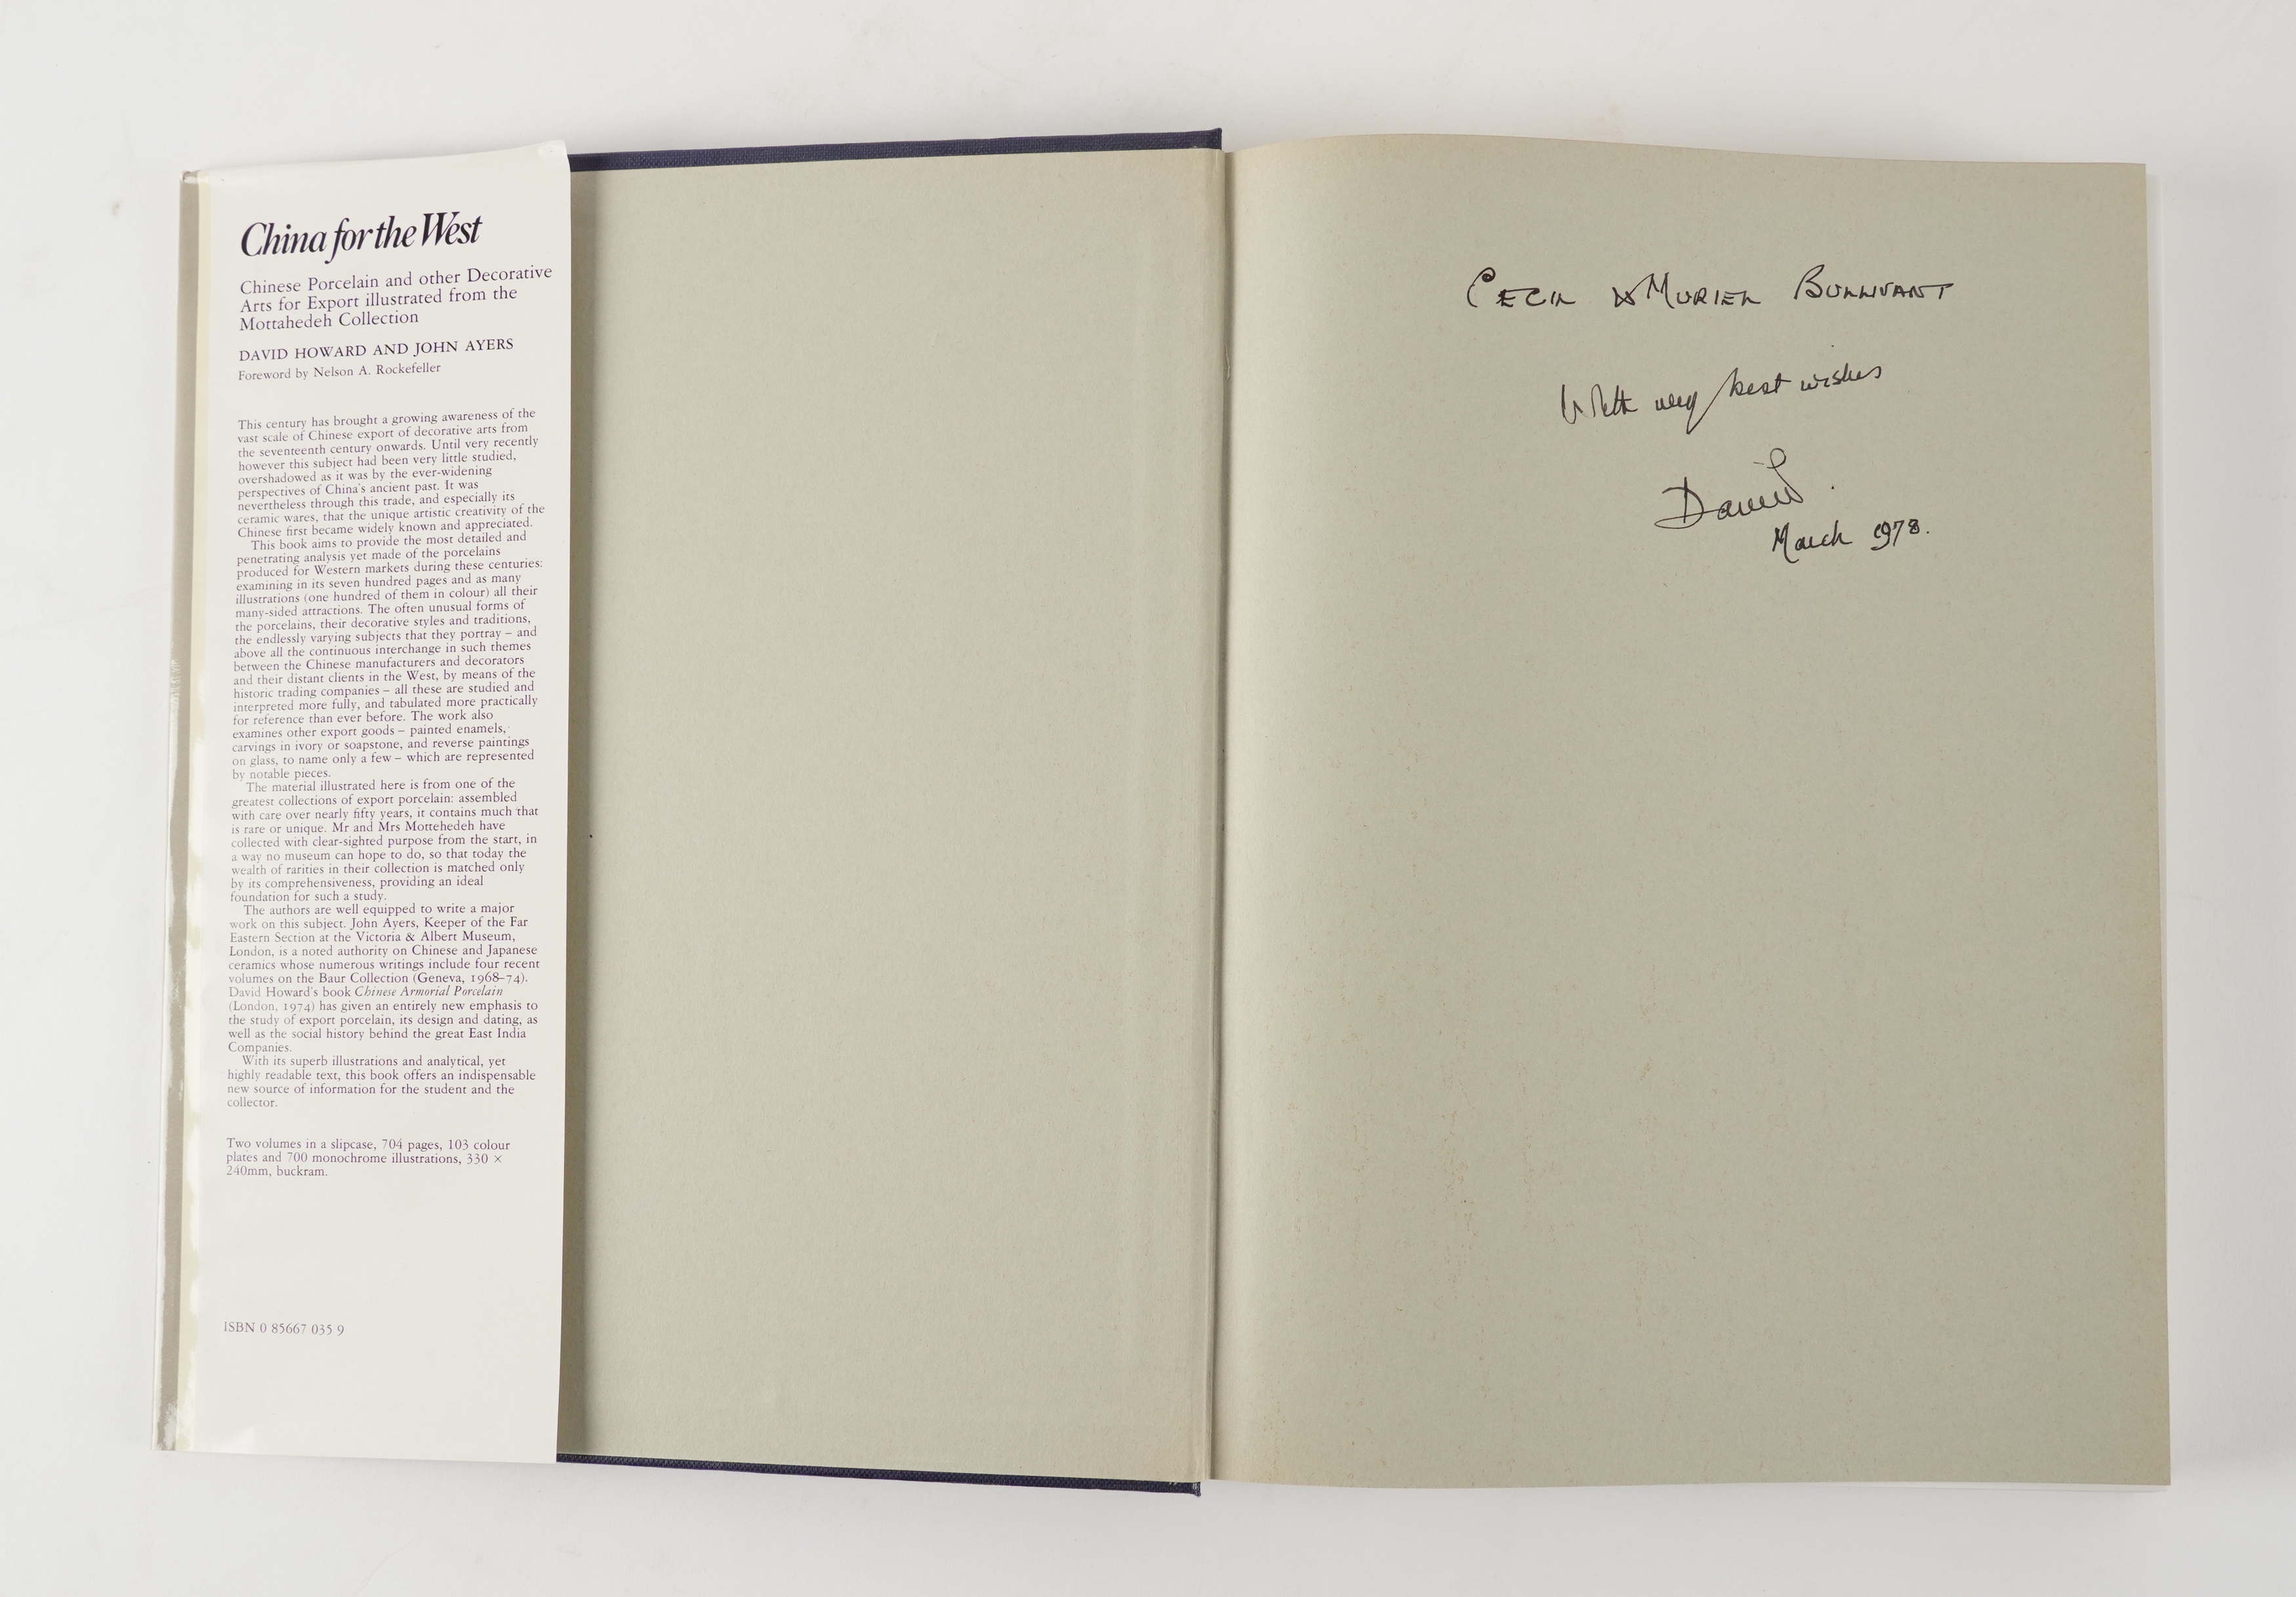 China for the West
Chinese Porcelain and other Decorative
Arts for Export illustrated from the
Mottahedeh Collection
DAVID HOWARD AND JOHN AYERS
Foreword by Nelson A. Rockefeller
This century has brought a growing awareness of the
vast scale of Chinese export of decorative arts from
the seventeenth century onwards. Until very recently
however this subject had been very little studied,
overshadowed as it was by the ever-widening
perspectives of China's ancient past. It was
nevertheless through this trade, and especially its
ceramic wares, that the unique artistic creativity of the
Chinese first became widely known and appreciated.
This book aims to provide the most detailed and
penetrating analysis yet made of the porcelains
produced for Western markets during these centuries:
examining in its seven hundred pages and as many
illustrations (one hundred of them in colour) all their
many-sided attractions. The often unusual forms of
the porcelains, their decorative styles and traditions,
the endlessly varying subjects that they portray – and
above all the continuous interchange in such themes
between the Chinese manufacturers and decorators
and their distant clients in the West, by means of the
historic trading companies – all these are studied and
interpreted more fully, and tabulated more practically
for reference than ever before. The work also
examines other export goods – painted enamels,
carvings in ivory or soapstone, and reverse paintings
on glass, to name only a few – which are represented
by notable pieces.
The material illustrated here is from one of the
greatest collections of export porcelain: assembled
with care over nearly fifty years, it contains much that
is rare or unique. Mr and Mrs Mottehedeh have
collected with clear-sighted purpose from the start, in
a way no museum can hope to do, so that today the
wealth of rarities in their collection is matched only
by its comprehensiveness, providing an ideal
foundation for such a study.
The authors are well equipped to write a major
work on this subject. John Ayers, Keeper of the Far
Eastern Section at the Victoria & Albert Museum,
London, is a noted authority on Chinese and Japanese
ceramics whose numerous writings include four recent
volumes on the Baur Collection (Geneva, 1968–74).
David Howard's book Chinese Armorial Porcelain
(London, 1974) has given an entirely new emphasis to
the study of export porcelain, its design and dating, as
well as the social history behind the great East India
Companies.
With its superb illustrations and analytical, yet
highly readable text, this book offers an indispensable
new source of information for the student and the
collector.
Two volumes in a slipcase, 704 pages, 103 colour
plates and 700 monochrome illustrations, 330 ×
240mm, buckram.
ISBN 0 85667 035 9
CECIL & MURIEL BULLIVANT
With very best wishes
David.
March 1978.